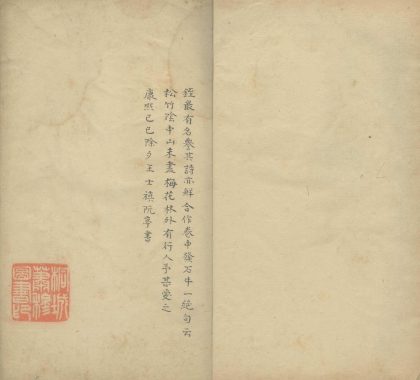 鋞最有名參其詩亦鮮合作卷中發石牛一絶句云
松竹陰中山未盡梅花林外有行人予甚愛之
康熙己巳除夕王士禛阮亭書
桐城
蕭穆
圖書印